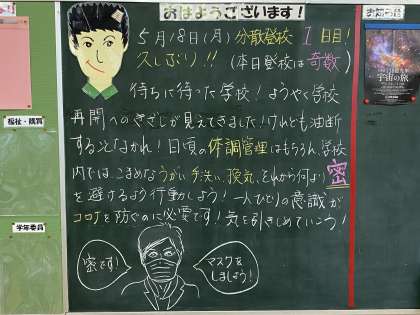 おはようございます!
お知らせ
5月18日(月)分散登校 1日目!
久しぶり!!(本日登校は奇数)
待ちに待った学校!ようやく学校
再開へのきざしが見えてきました!けれども油断
することなかれ!日頃の体調管理はもちろん、学校
内では、こまめなうがい手洗い、換気、それから何より密
を避けるよう行動しよう!一人ひとりの意識が
コロナを防ぐのに必要です!気を引きしめていこう!
密です!
マスクを
しましょう!
福祉・購買
学年委員
宇宙の旅